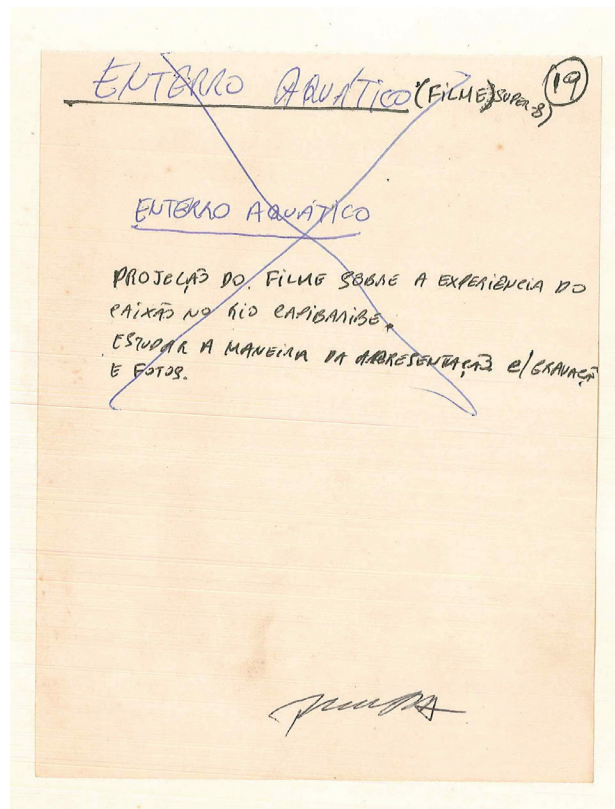 ENTERRO AQUÁTICO (FILME) SUPER-8) 19
ENTERRO AQUÁTICO
PROJEÇÃO DO FILME SOBRE A EXPERIÊNCIA DO
CAIXÃO NO RIO CAPIBARIBE.
ESTUDAR A MANEIRA DA APRESENTAÇÃO C/ GRAVAÇÃO
E FOTOS.